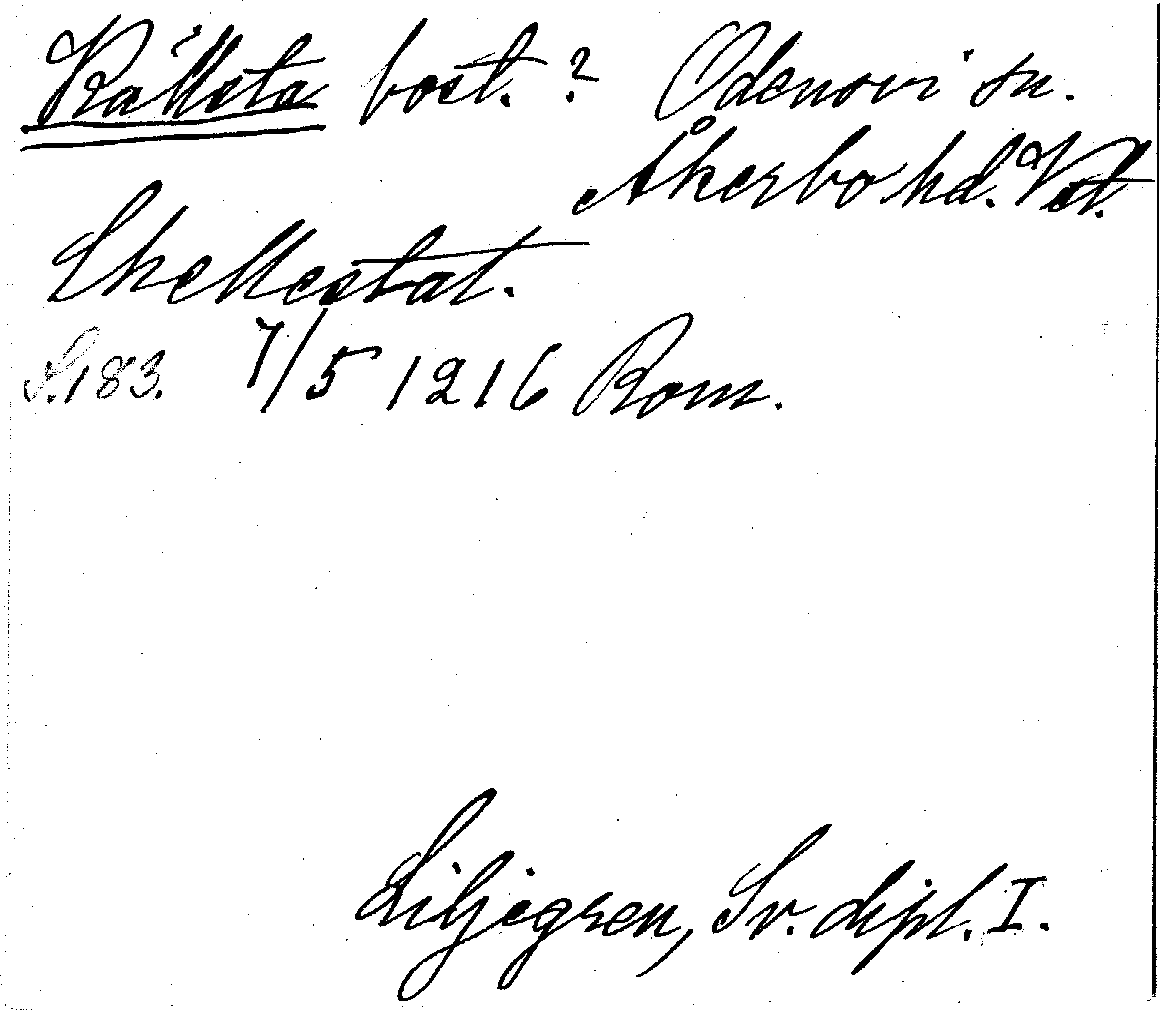 Källsta bost.? Odensvi sn.
Åkerbo hd. Vst.
Chellestat.
S. 183. 7/5 1216 Rom.
Liljegren, Sv. dipl. I.